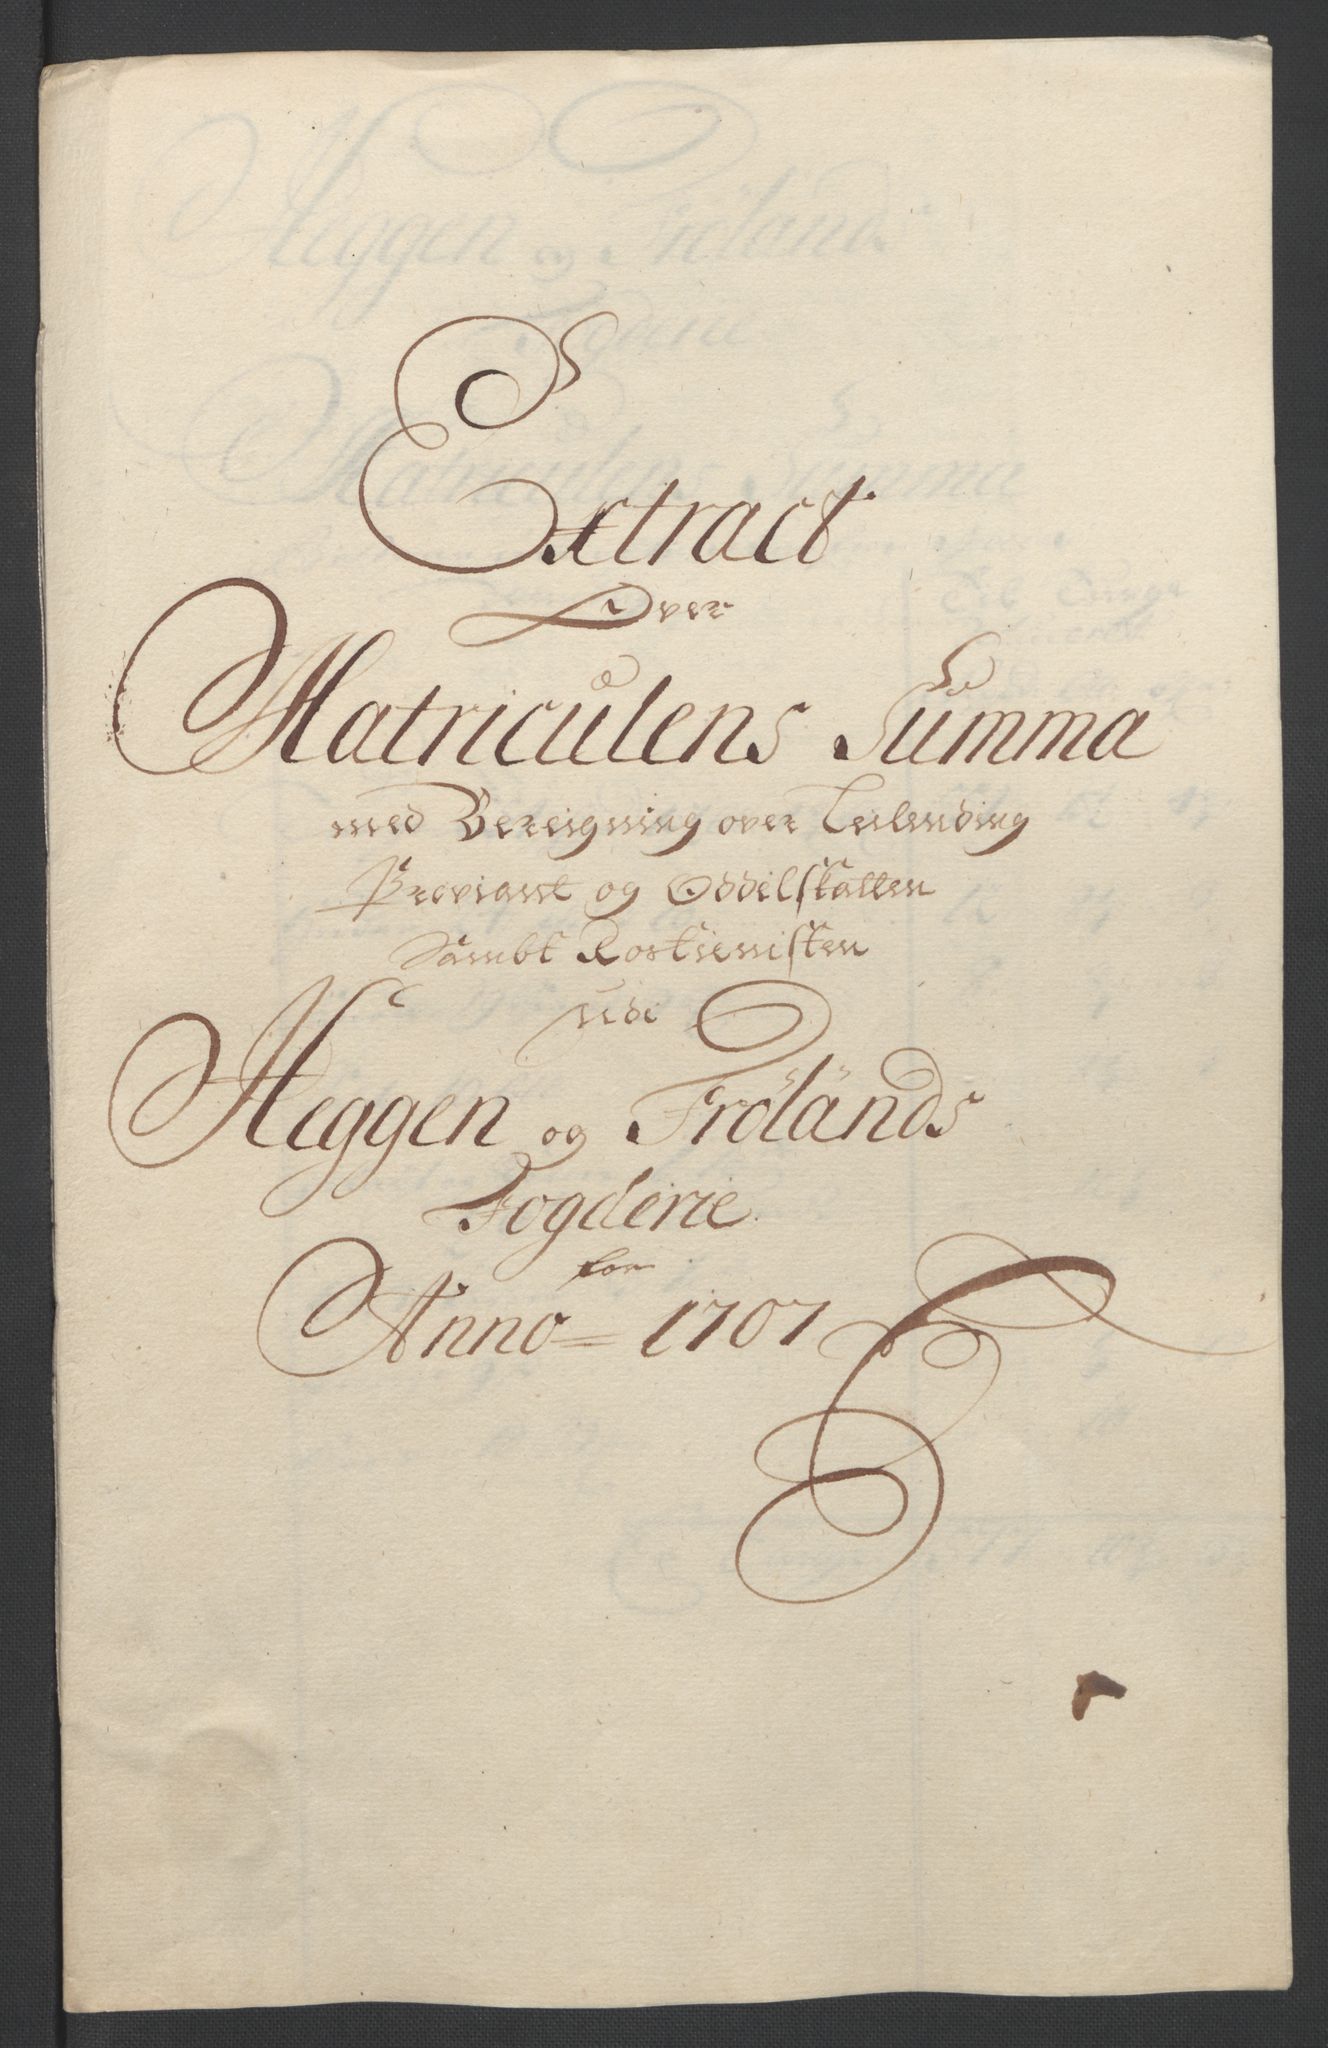 Extract
Over
Matriculens Summa
med Beregning over Leilending
Proviant og Oddelskatten
Sambt Rostienisten
Udi
Heggen og Frölands
Fogderie
for
Anno 1707